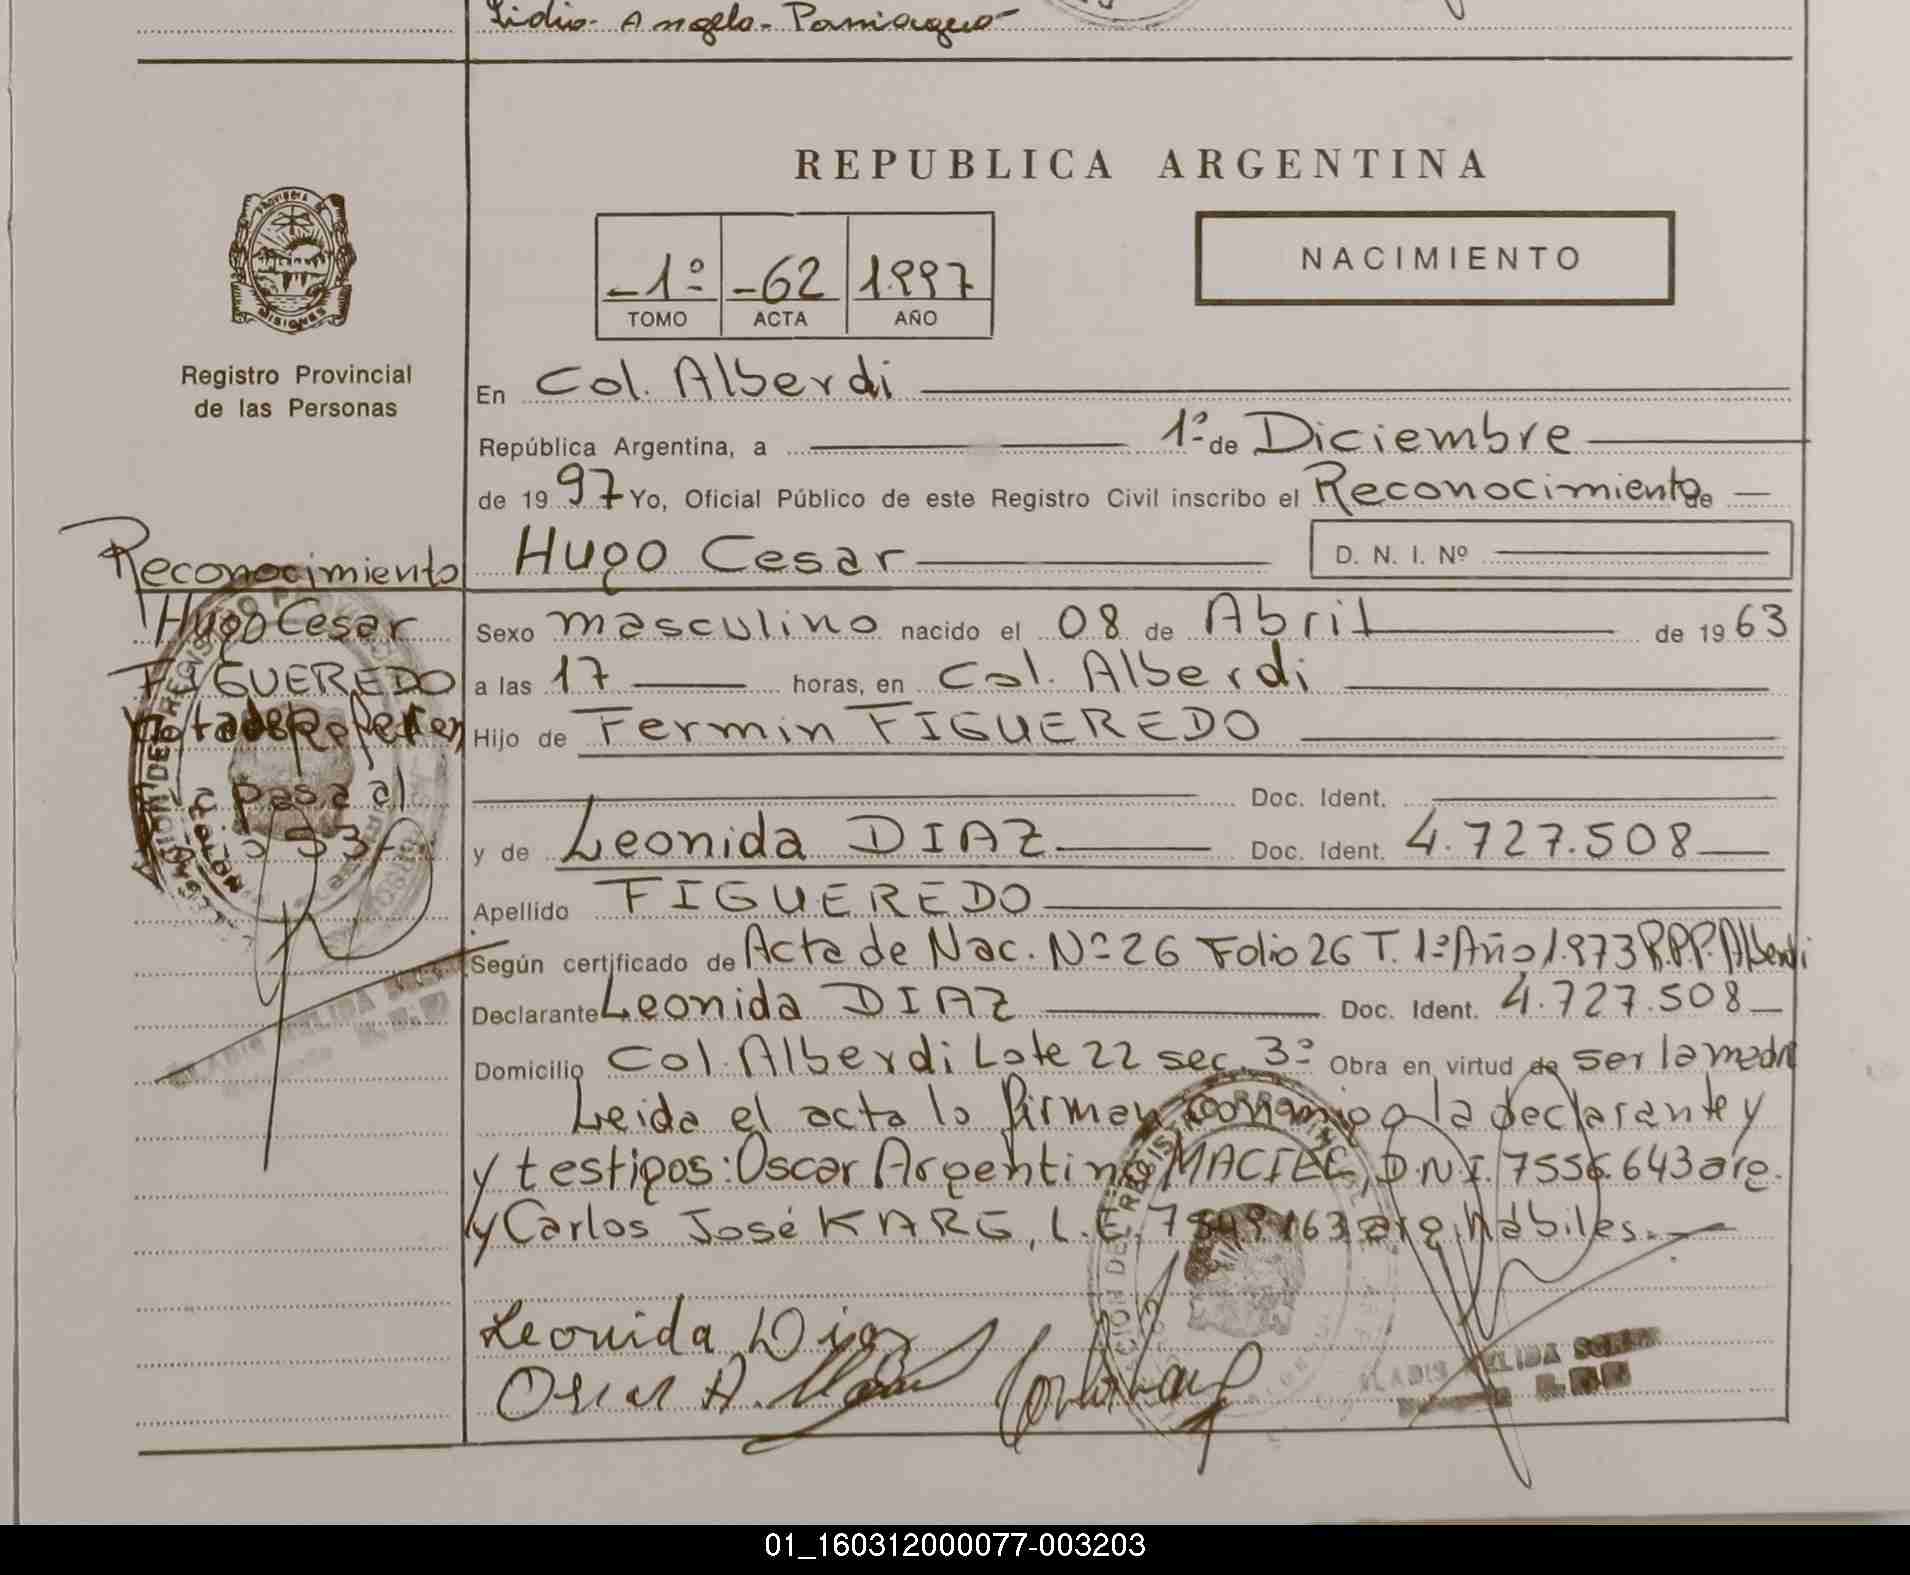 Lidia Angela Paniagua
REPUBLICA ARGENTINA
NACIMIENTO
-1º -62 1997
TOMO ACTA AÑO
PROVINCIA DE MISIONES
Registro Provincial
de las Personas
En Col. Alberdi
República Argentina, a 1º de Diciembre
de 1997 Yo, Oficial Público de este Registro Civil inscribo el Reconocimiento de
Hugo Cesar D. N. I. Nº
Sexo masculino nacido el 08 de Abril de 1963
a las 17 horas, en Col. Alberdi
Hijo de Fermin FIGUEREDO
Doc. Ident.
y de Leonida DIAZ Doc. Ident. 4.727.508
Apellido FIGUEREDO
Según certificado de Acta de Nac. Nº 26 Folio 26 T. 1º Año 1.973 R.P.P. Alberdi
Declarante Leonida DIAZ Doc. Ident. 4.727.508
Domicilio Col. Alberdi Lote 22 sec. 3º Obra en virtud de ser la madre
Leida el acta lo firman conmigo la declarante y
y testigos: Oscar Argentino MACIEL, D.N.I. 7556.643 arg.
y Carlos José KARG, L.E. 7549163 arg. hábiles.
Leonida Diaz
Oscar A.
Reconocimiento
Hugo Cesar
FIGUEREDO
Nota de Referen
pasa al
Folio 93
01_160312000077-003203